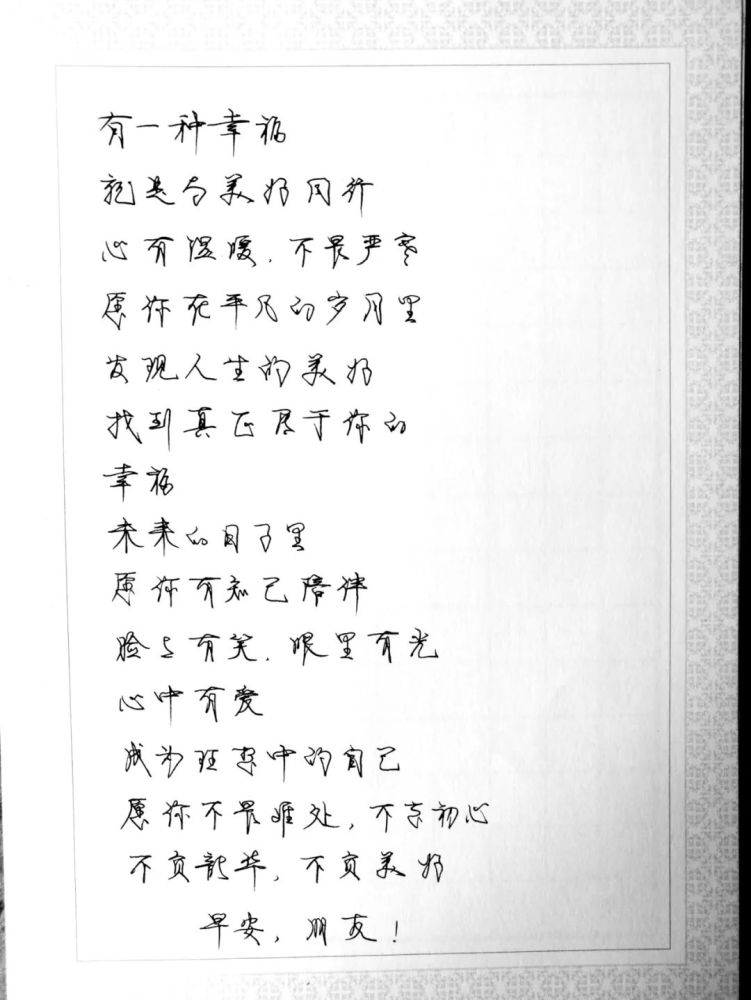 有一种幸福
就是与美好同行
心有温暖，不畏严寒
愿你在平凡的岁月里
发现人生的美好
找到真正属于你的
幸福
未来的日子里
愿你有知己陪伴
脸上有笑，眼里有光
心中有爱
成为理想中的自己
愿你不畏难处，不忘初心
不负韶华，不负美好
早安，朋友！